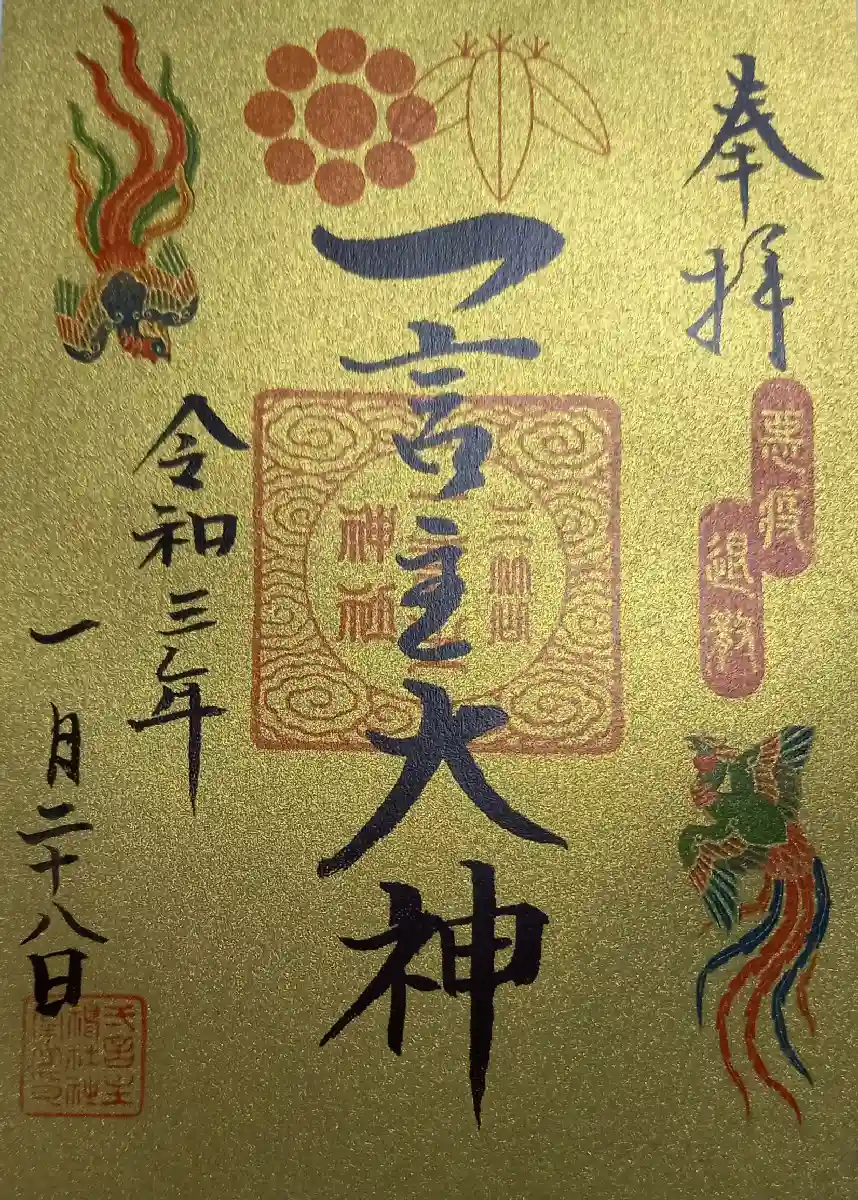 奉拝
悪疫
退散
一言主大神
神社
令和三年
一月二十八日